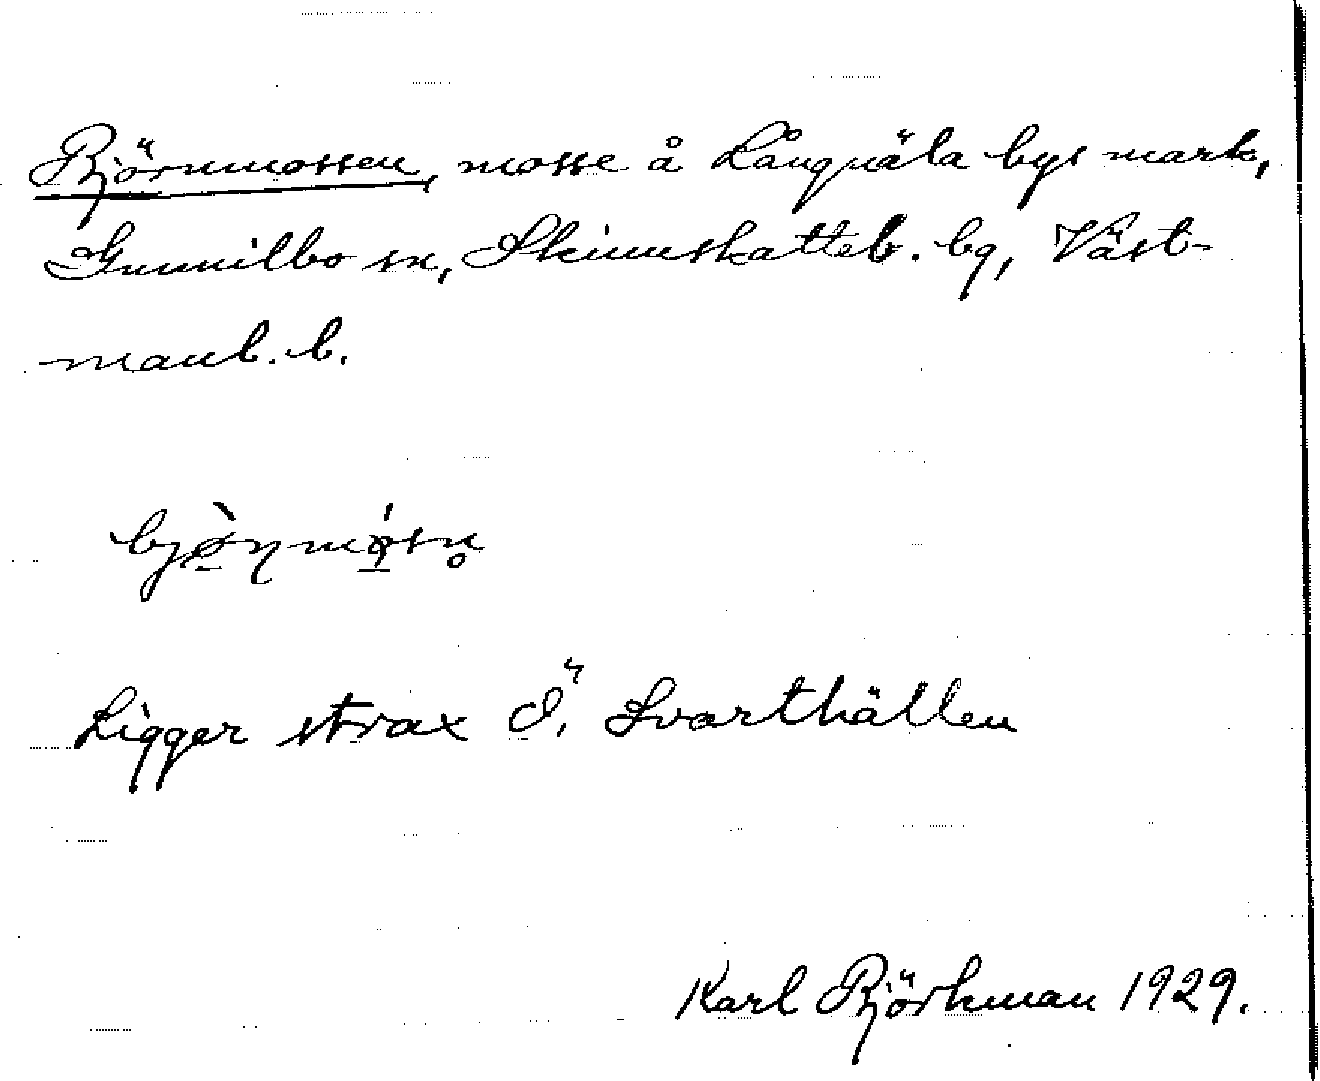 Björnmossen, mosse å Långnäla bys mark,
Gunnilbo sn, Skinnskatteb. bg, Väst-
manl. l.
bjø̀ṇmó̱sn̥
Ligger strax Ö. Svarthällen
Karl Björkman 1929.